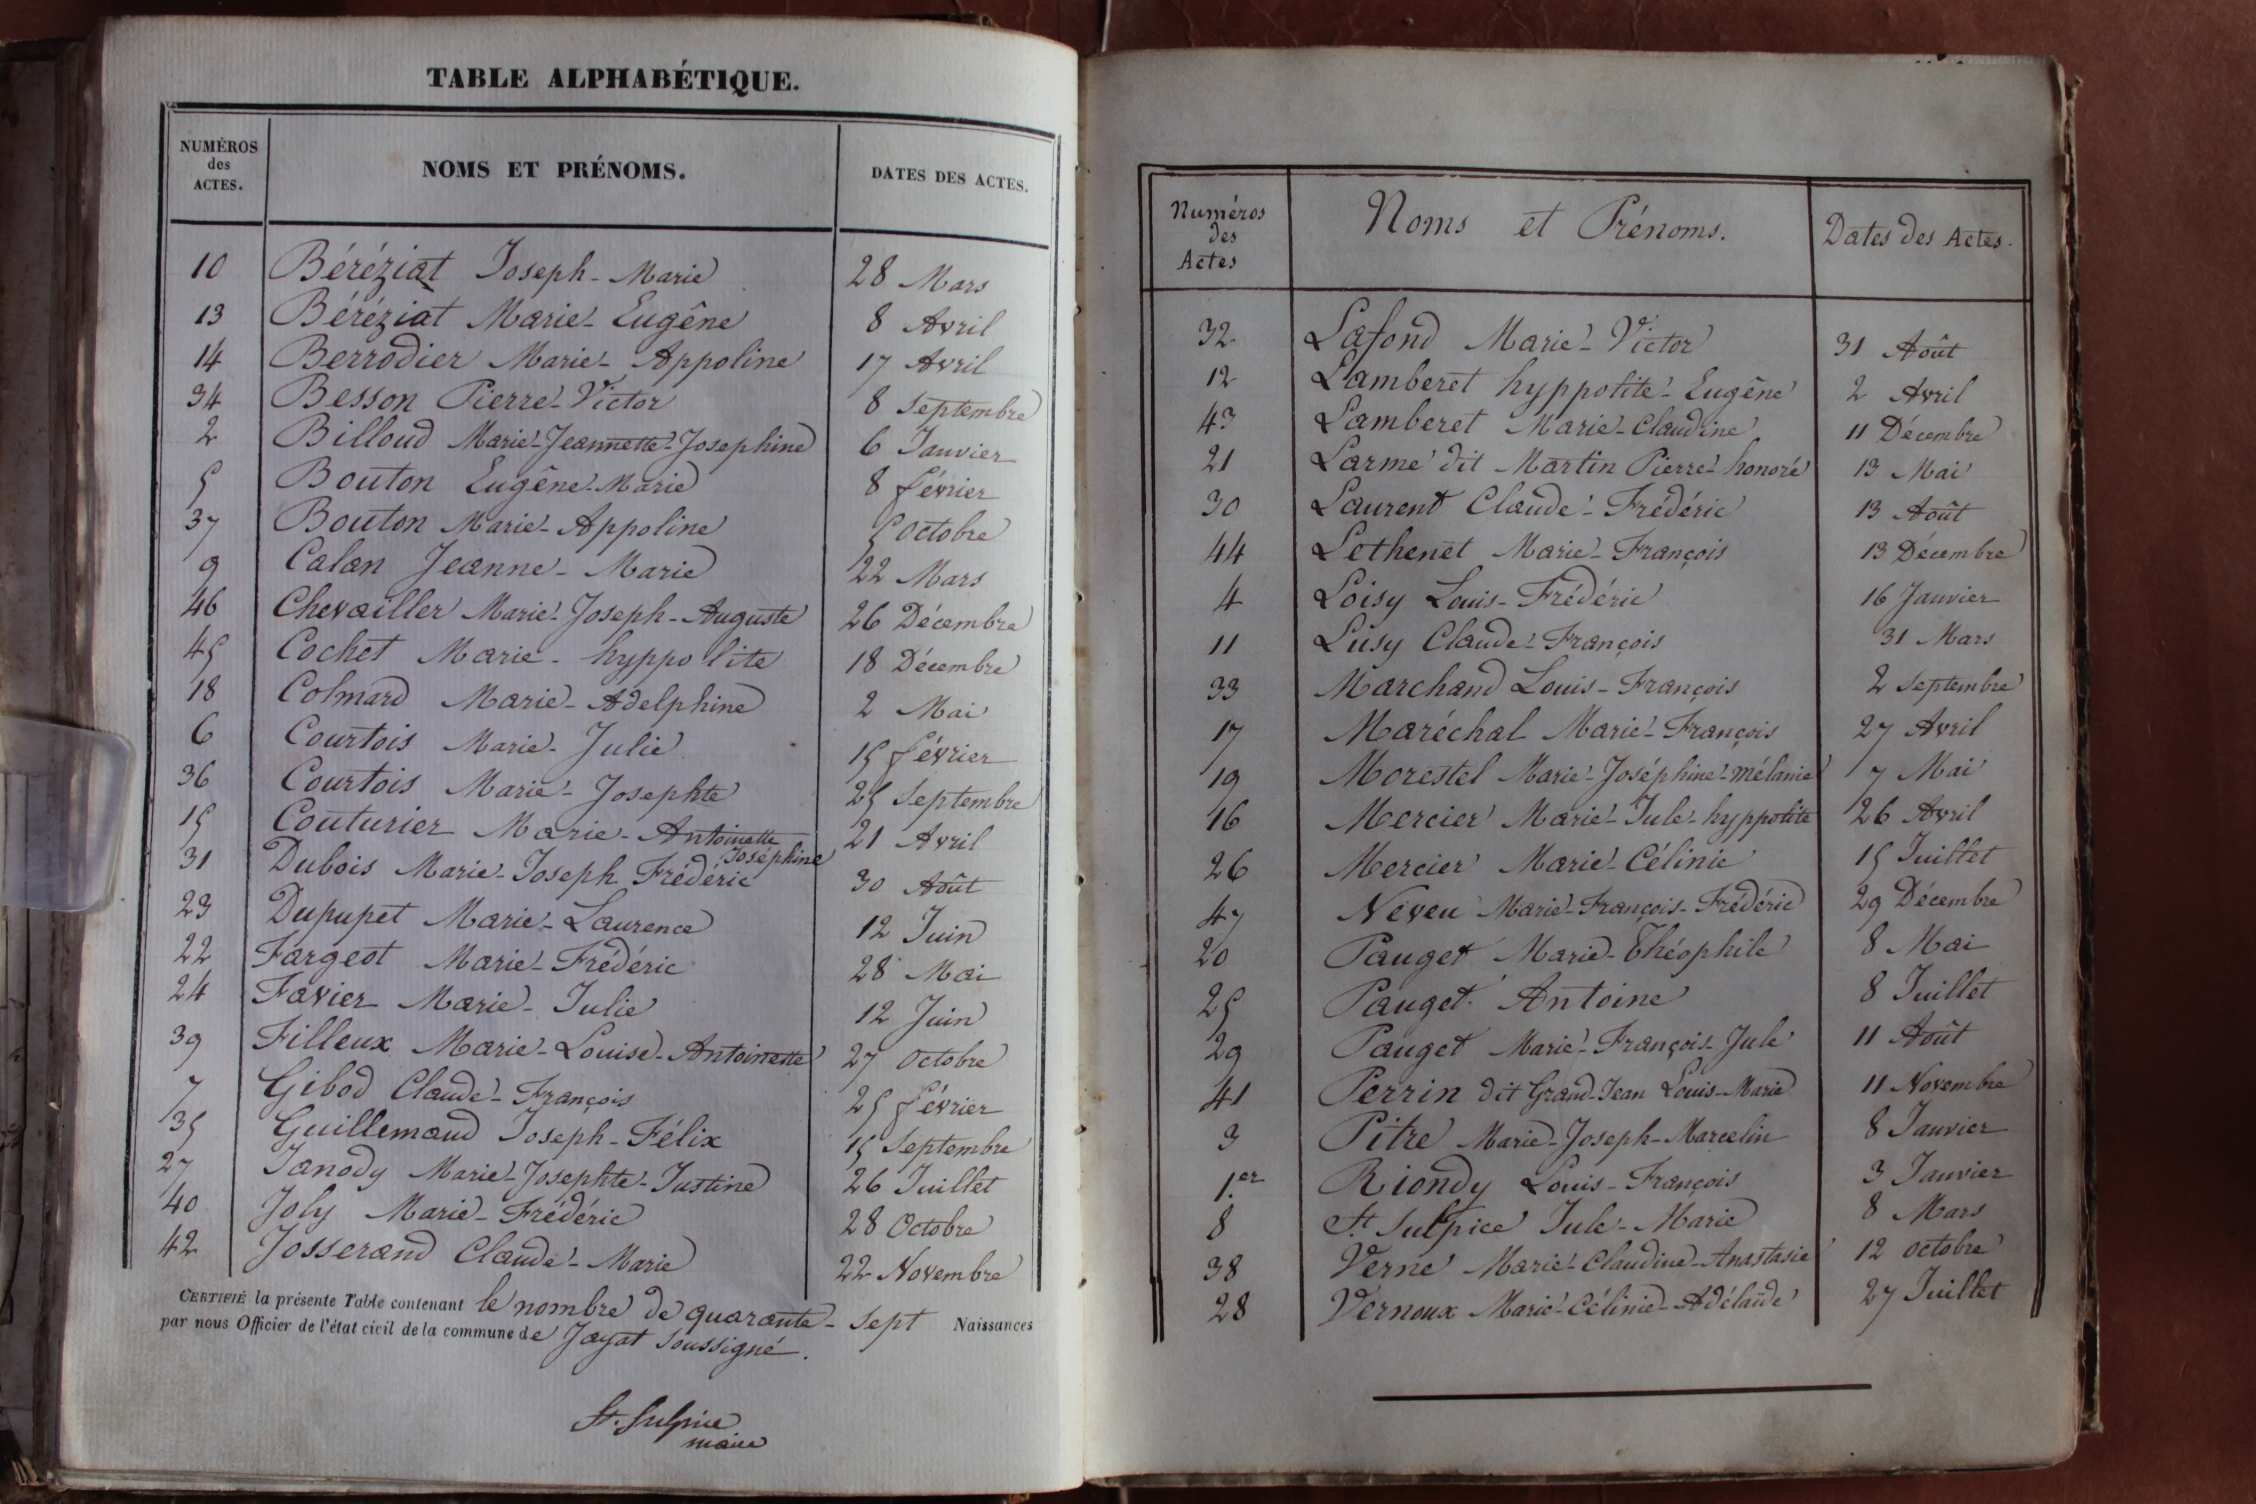 TABLE ALPHABÉTIQUE.
NUMÉROS des ACTES. NOMS ET PRÉNOMS. DATES DES ACTES.
10 Béréziat Joseph-Marie 28 Mars
13 Béréziat Marie-Eugêne 8 Avril
14 Berrodier Marie-Appoline 17 Avril
34 Besson Pierre-Victor 8 Septembre
2 Billoud Marie-Jeannette-Josephine 6 Janvier
5 Bouton Eugêne-Marie 8 février
37 Bouton Marie-Appoline 5 octobre
9 Calan Jeanne-Marie 22 Mars
46 Chevailler Marie-Joseph-Auguste 26 Décembre
45 Cochet Marie-hyppolite 18 Décembre
18 Colmard Marie-Adelphine 2 Mai
6 Courtois Marie-Julie 15 février
36 Courtois Marie-Josephte 25 Septembre
15 Couturier Marie-Antoinette Joséphine 21 Avril
31 Dubois Marie-Joseph Frédéric 30 Août
23 Dupupet Marie-Laurence 12 Juin
22 Fargeot Marie-Frédéric 28 Mai
24 Favier Marie-Julie 12 Juin
39 Filleux Marie-Louise-Antoinette 27 octobre
7 Gibod Claude-François 25 février
35 Guillemaud Joseph-Félix 15 Septembre
27 Janody Marie-Josephte-Justine 26 Juillet
40 Joly Marie-Frédéric 28 Octobre
42 Josserand Claude-Marie 22 Novembre
CERTIFIÉ la présente Table contenant le nombre de quarante-sept Naissances
par nous Officier de l'état civil de la commune de Jayat soussigné.
St. Sulpice
maire
Numéros des Actes Noms et Prénoms. Dates des Actes.
32 Lafond Marie-Victor 31 Août
12 Lamberet hyppolite-Eugêne 2 Avril
43 Lamberet Marie-Claudine 11 Décembre
21 Larme dit Martin Pierre-honoré 13 Mai
30 Laurent Claude-Frédéric 13 Août
44 Lethenet Marie-François 13 Décembre
4 Loisy Louis-Frédéric 16 Janvier
11 Lusy Claude-François 31 Mars
33 Marchand Louis-François 2 Septembre
17 Maréchal Marie-François 27 Avril
19 Morestel Marie-Joséphine-mélanie 7 Mai
16 Mercier Marie-Jule-hyppolite 26 Avril
26 Mercier Marie-Célinie 15 Juillet
47 Neveu Marie-François-Frédéric 29 Décembre
20 Pauget Marie-Théophile 8 Mai
25 Pauget Antoine 8 Juillet
29 Pauget Marie-François-Jule 11 Août
41 Perrin dit Grand-Jean Louis-Marie 11 Novembre
3 Pitre Marie-Joseph-Marcelin 8 Janvier
1.er Riondy Louis-François 3 Janvier
8 St. Sulpice Jule-Marie 8 Mars
38 Verne Marie-Claudine-Anastasie 12 octobre
28 Vernoux Marie-Célinie-Adélaïde 27 Juillet